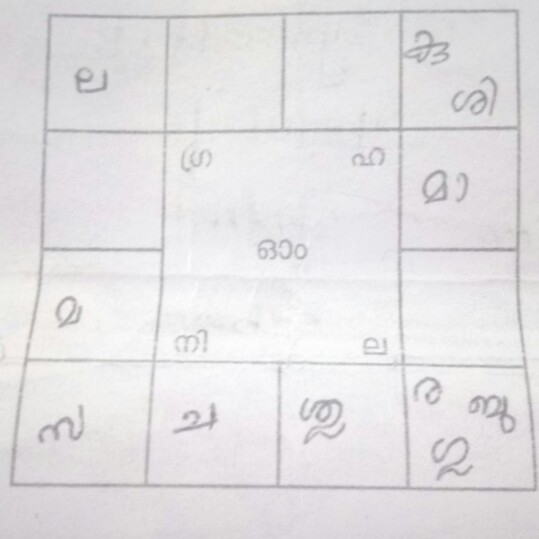 ല
കു
ശി
ഗ്ര ഹ
മാ
ഓം
മ
നി ല
സ
ച
ശു
ര ബു
ഗു